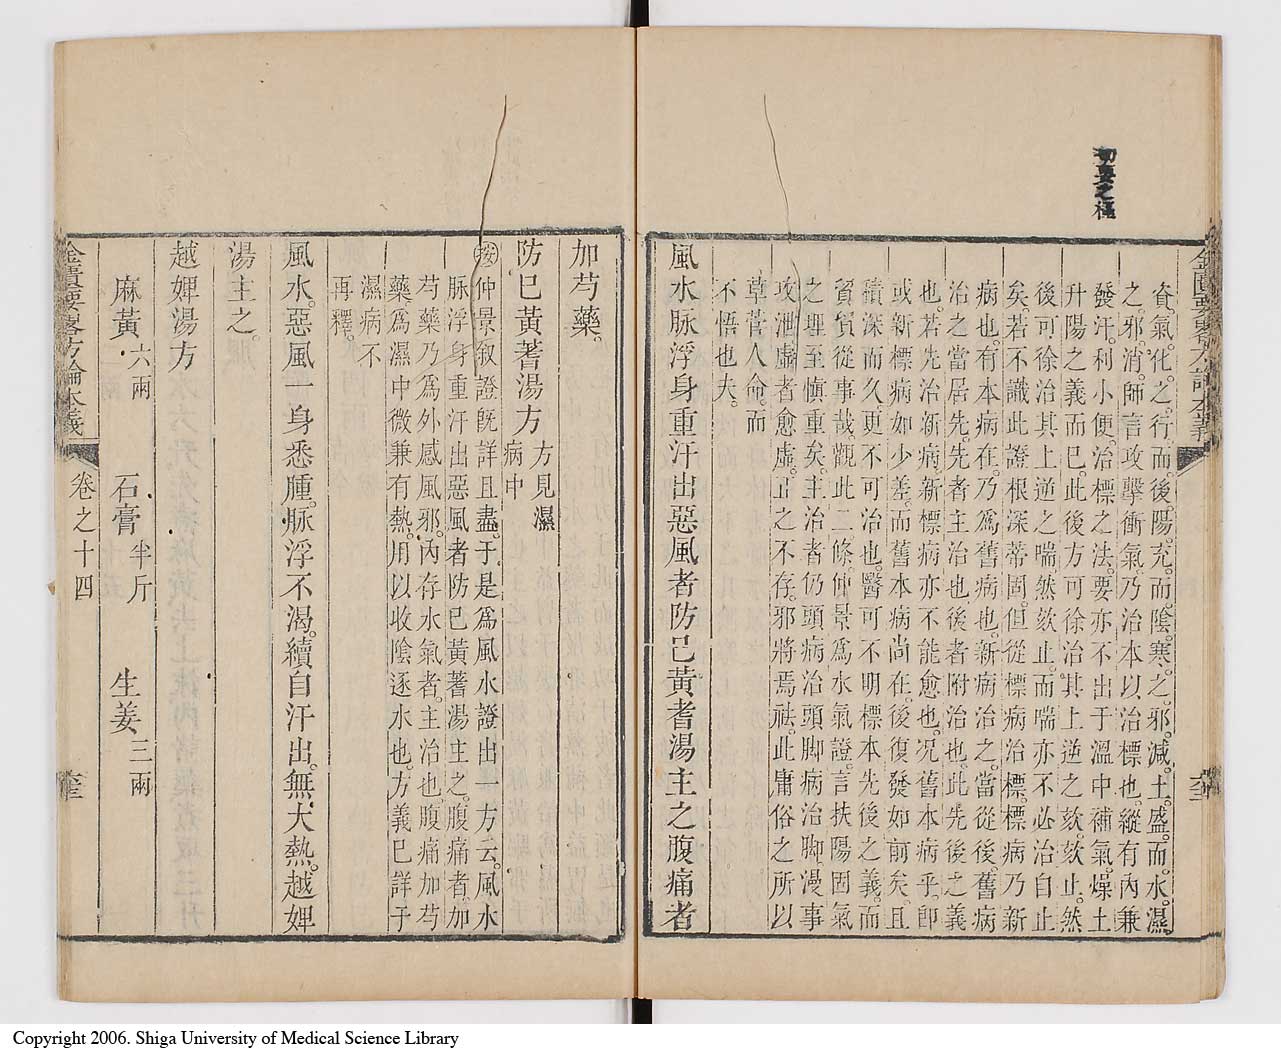 切要之極
資氣化之行而後陽充而陰寒之邪減土盛而水濕
之邪消師言攻擊衝氣乃治本以治標也縱有內兼
發汗利小便治標之法要亦不出于溫中補氣燥土
升陽之義而已此後方可徐治其上逆之欬欬止然
後可徐治其上逆之喘然欬止而喘亦不必治自止
矣若不識此證根深蒂固但從標病治標標病乃新
病也有本病在乃爲舊病也新病治之當從後舊病
治之當居先先者主治也後者附治也此先後之義
也若先治新病新標病亦不能愈也况舊本病乎卽
或新標病如少差而舊本病尚在後復發如前矣且
積深而久更不可治也醫可不明標本先後之義而
貿貿從事哉觀此二條仲景爲水氣證言扶陽固氣
之理至慎重矣主治者仍頭病治頭脚病治脚漫事
攻泄虛者愈虛正之不存邪將焉祛此庸俗之所以
草菅人命而
不悟也夫
風水脉浮身重汗出惡風者防已黃耆湯主之腹痛者
加芍藥
防已黃蓍湯方 方見濕
病中
按仲景叙證旣詳且盡于是爲風水證出一方云風水
脉浮身重汗出惡風者防已黃蓍湯主之腹痛者加
芍藥乃爲外感風邪內存水氣者主治也腹痛加芍
藥爲濕中微兼有熱用以收陰逐水也方義已詳于
濕病不
再釋
風水惡風一身悉腫脉浮不渴續自汗出無大熱越婢
湯主之
越婢湯方
麻黃 六兩 石膏 半斤 生姜 三兩
金匱要畧方論本義 卷之十四
Copyright 2006. Shiga University of Medical Science Library